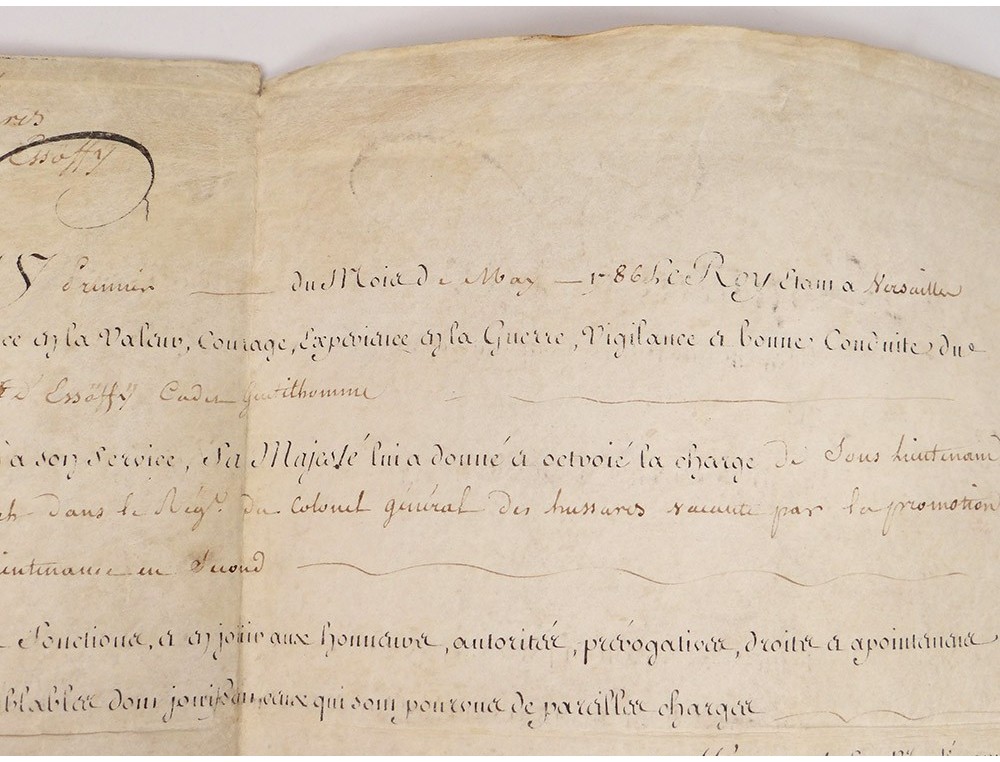 res
Essöffÿ
premier du Mois de May 1786 Le Roy étant a Versailles
ce en la Valeur, Courage, Expérience en la Guerre, Vigilance et bonne Conduite du
d'Essöffÿ Cadet Gentilhomme
à son Service, Sa Majesté lui a donné et octroié la charge de Sous Lieutenant
dans le Rég.t du Colonel général des hussares vacante par la promotion
ieutenance en Second
Fonctions, et en jouir aux honneurs, autorités, prérogatives, droits et apointemens
blables dont jouissent ceux qui sont pourvus de pareilles charges